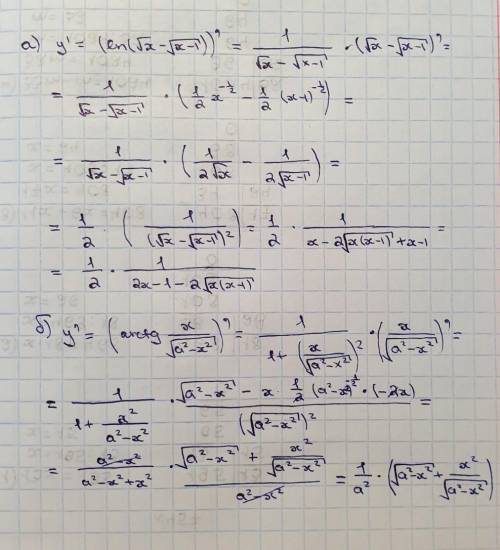 а) y' = (ln(√x − √(x−1)))' = 1/(√x − √(x−1)) · (√x − √(x−1))' =
= 1/(√x − √(x−1)) · (1/2 x^(−1/2) − 1/2 (x−1)^(−1/2)) =
= 1/(√x − √(x−1)) · (1/(2√x) − 1/(2√(x−1))) =
= 1/2 · (1/(√x − √(x−1))²) = 1/2 · 1/(x − 2√(x(x−1)) + x−1) =
= 1/2 · 1/(2x − 1 − 2√(x(x−1)))
б) y' = (arctg x/√(a²−x²))' = 1/(1 + (x/√(a²−x²))²) · (x/√(a²−x²))' =
= 1/(1 + x²/(a²−x²)) · (√(a²−x²) − x · 1/2 (a²−x²)^(−1/2) · (−2x))/(√(a²−x²))² =
= (a²−x²)/(a²−x²+x²) · (√(a²−x²) + x²/√(a²−x²))/(a²−x²) = 1/a² · (√(a²−x²) + x²/√(a²−x²))